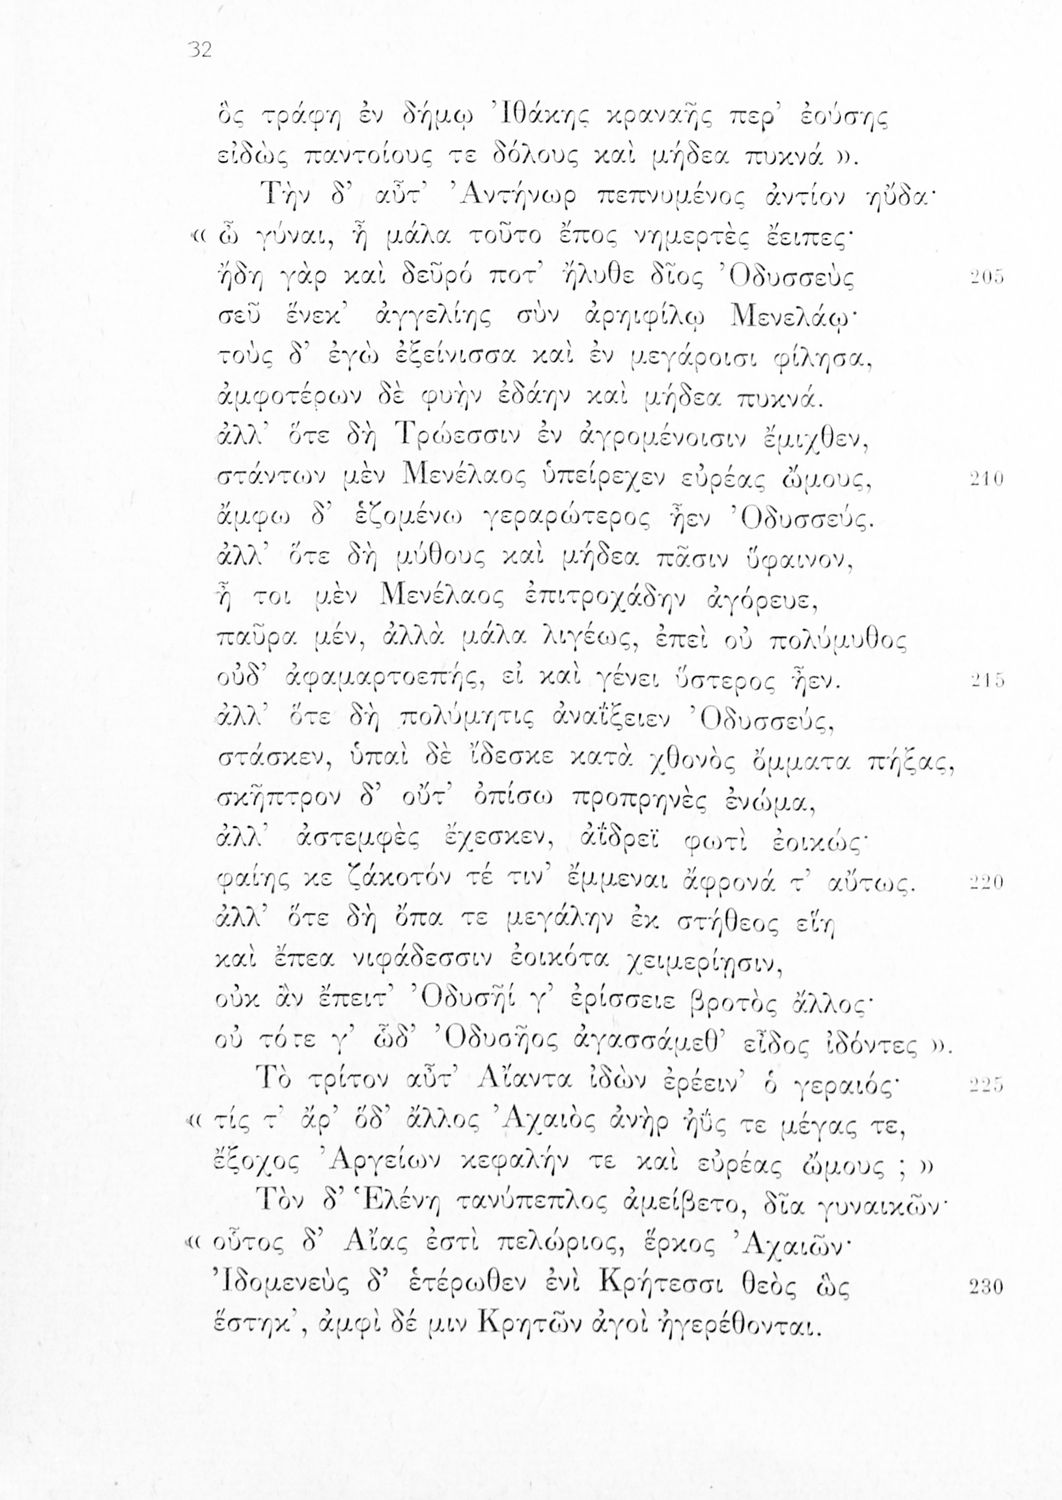 32
ὃς τράφη ἐν δήμῳ Ἰθάκης κραναῆς περ’ ἐούσης
εἰδὼς παντοίους τε δόλους καὶ μήδεα πυκνά ».
Τὴν δ’ αὖτ’ Ἀντήνωρ πεπνυμένος ἀντίον ηὔδα·
« ὦ γύναι, ἦ μάλα τοῦτο ἔπος νημερτὲς ἔειπες·
ἤδη γὰρ καὶ δεῦρό ποτ’ ἤλυθε δῖος Ὀδυσσεὺς 205
σεῦ ἕνεκ’ ἀγγελίης σὺν ἀρηιφίλῳ Μενελάῳ·
τοὺς δ’ ἐγὼ ἐξείνισσα καὶ ἐν μεγάροισι φίλησα,
ἀμφοτέρων δὲ φυὴν ἐδάην καὶ μήδεα πυκνά.
ἀλλ’ ὅτε δὴ Τρώεσσιν ἐν ἀγρομένοισιν ἔμιχθεν,
στάντων μὲν Μενέλαος ὑπείρεχεν εὐρέας ὤμους, 210
ἄμφω δ’ ἑζομένω γεραρώτερος ἦεν Ὀδυσσεύς.
ἀλλ’ ὅτε δὴ μύθους καὶ μήδεα πᾶσιν ὕφαινον,
ἦ τοι μὲν Μενέλαος ἐπιτροχάδην ἀγόρευε,
παῦρα μέν, ἀλλὰ μάλα λιγέως, ἐπεὶ οὐ πολύμυθος
οὐδ’ ἀφαμαρτοεπής, εἰ καὶ γένει ὕστερος ἦεν. 215
ἀλλ’ ὅτε δὴ πολύμητις ἀναΐξειεν Ὀδυσσεύς,
στάσκεν, ὑπαὶ δὲ ἴδεσκε κατὰ χθονὸς ὄμματα πήξας,
σκῆπτρον δ’ οὔτ’ ὀπίσω προπρηνὲς ἐνώμα,
ἀλλ’ ἀστεμφὲς ἔχεσκεν, ἀΐδρεϊ φωτὶ ἐοικώς·
φαίης κε ζάκοτόν τέ τιν’ ἔμμεναι ἄφρονά τ’ αὔτως. 220
ἀλλ’ ὅτε δὴ ὄπα τε μεγάλην ἐκ στήθεος εἵη
καὶ ἔπεα νιφάδεσσιν ἐοικότα χειμερίῃσιν,
οὐκ ἂν ἔπειτ’ Ὀδυσῆΐ γ’ ἐρίσσειε βροτὸς ἄλλος·
οὐ τότε γ’ ὧδ’ Ὀδυσῆος ἀγασσάμεθ’ εἶδος ἰδόντες ».
Τὸ τρίτον αὖτ’ Αἴαντα ἰδὼν ἐρέειν’ ὁ γεραιός· 225
« τίς τ’ ἄρ’ ὅδ’ ἄλλος Ἀχαιὸς ἀνὴρ ἠΰς τε μέγας τε,
ἔξοχος Ἀργείων κεφαλήν τε καὶ εὐρέας ὤμους ; »
Τὸν δ’ Ἑλένη τανύπεπλος ἀμείβετο, δῖα γυναικῶν·
« οὗτος δ’ Αἴας ἐστὶ πελώριος, ἕρκος Ἀχαιῶν·
Ἰδομενεὺς δ’ ἑτέρωθεν ἐνὶ Κρήτεσσι θεὸς ὣς 230
ἕστηκ’, ἀμφὶ δέ μιν Κρητῶν ἀγοὶ ἠγερέθονται.